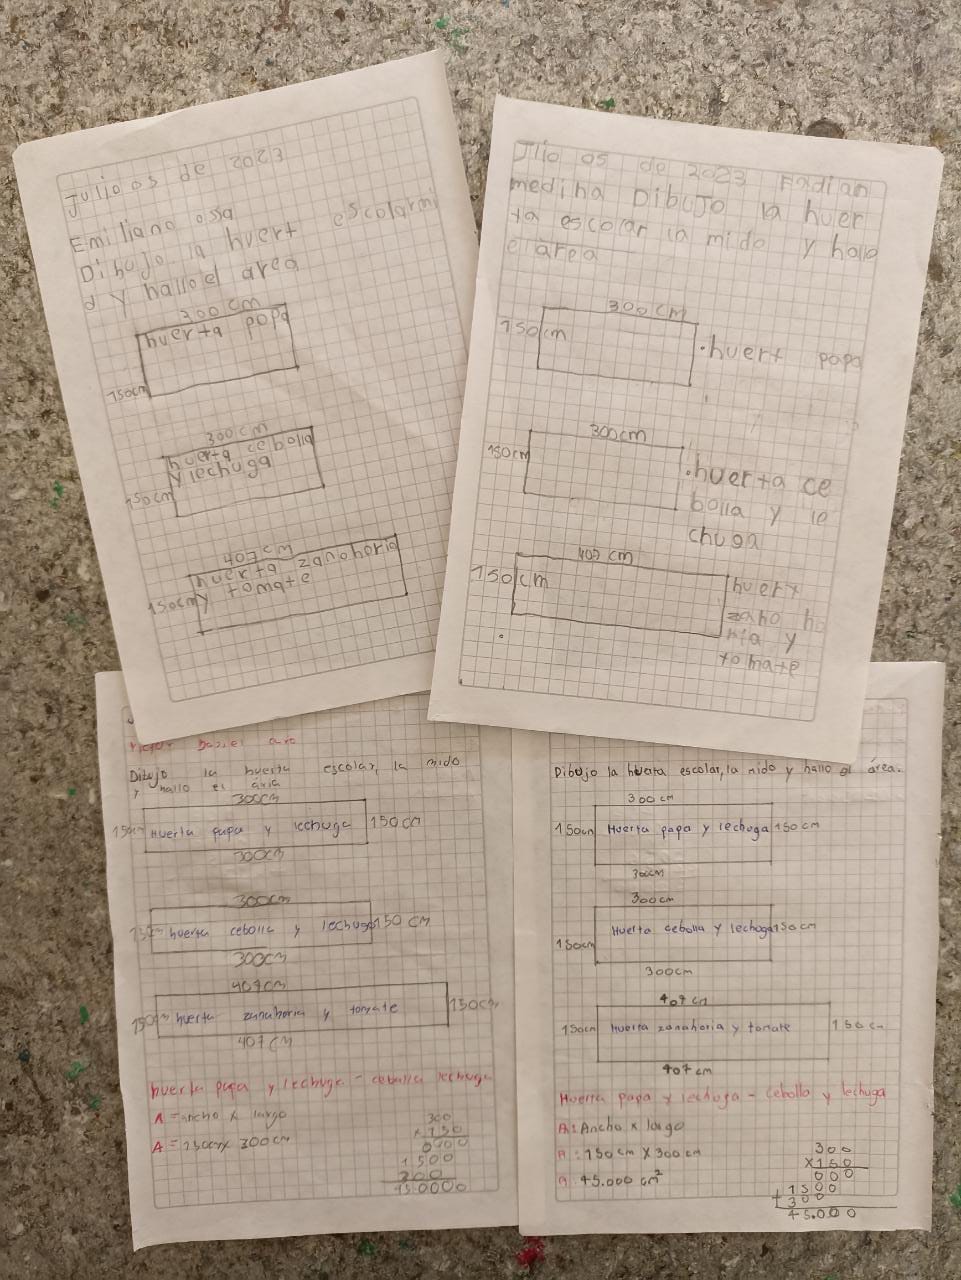 Julio 05 de 2023
Emiliano ossa
Dibujo la huert escolarmi
d y hallo el area
300 cm
huerta popa
150cm
300cm
huerta cebolla
y lechuga
150cm
407cm
huerta zanahoria
y tomate
150cm
Jlio 05 de 2023 Fadian
medina Dibujo la huer
ta escolar la mido y hallo
el area
300cm
150cm
•huert papa
300cm
150cm
•huerta ce
bolla y le
chuga
407 cm
150cm
huert
zanoho
ria y
tomate
Dibujo la huerta escolar, la mido
y hallo el
300cm
150cm Huerta papa y lechuga 150cm
300cm
300cm
huerta cebolla y lechuga 150 cm
300cm
407cm
150cm huerta zanahoria y tomate 150cm
407cm
huerta papa y lechuga - cebolla lechuga
A = ancho x largo
A = 150cm x 300cm
300
x 150
0000
1500
300
450000
Dibujo la huerta escolar, la mido y hallo el área.
300cm
150cm Huerta papa y lechuga 150cm
300cm
300cm
150cm Huerta cebolla y lechuga 150cm
300cm
407 cm
150cm Huerta zanahoria y tomate 150cm
407 cm
Huerta papa y lechuga - Cebolla y lechuga
A: Ancho x largo
A: 150cm x 300cm
A: 45.000 cm²
300
x150
000
1500
+ 300
45.000